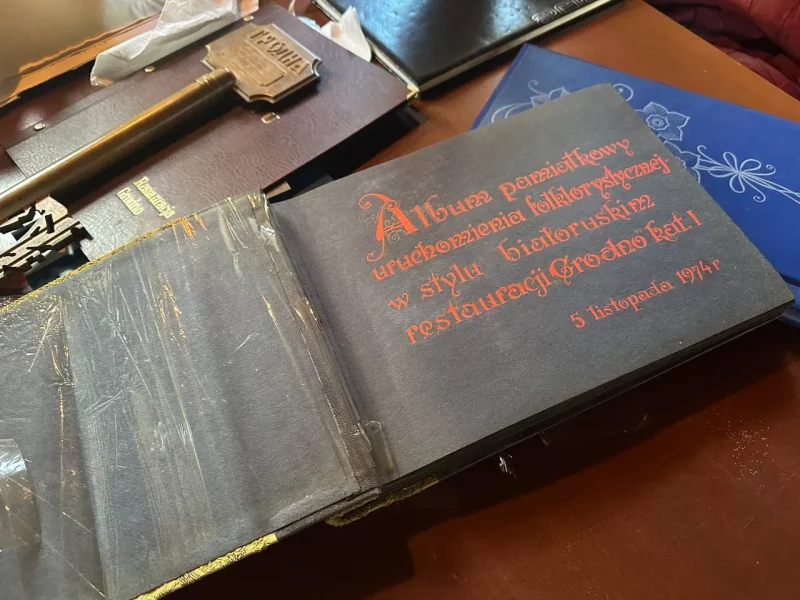 ГРОДНА
Restauracja
Grodno
Album pamiątkowy
uruchomienia folklorystycznej
w stylu białoruskim
restauracji "Grodno" kat. I
5 listopada 1974 r